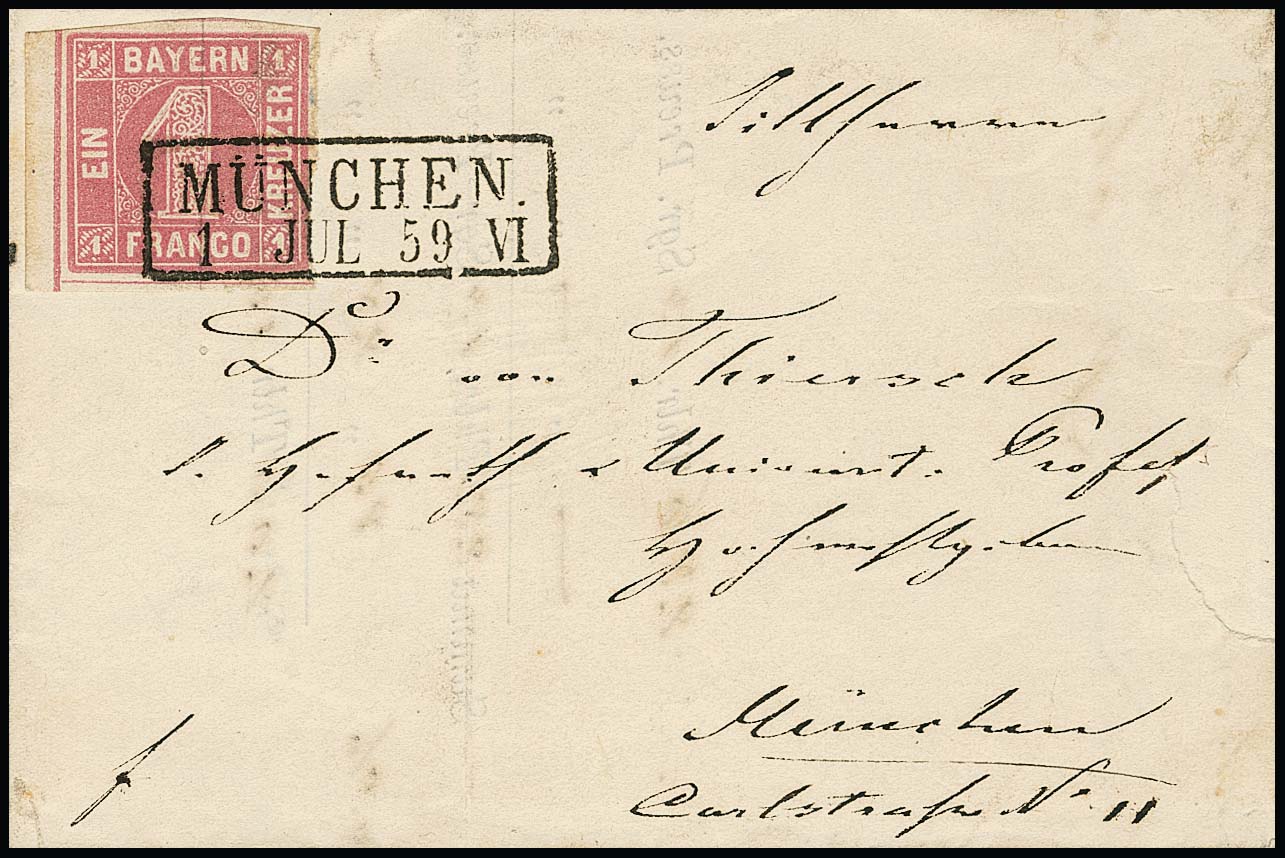 1 BAYERN 1
EIN
KREUZER
1 FRANCO 1
MÜNCHEN.
1 JUL 59 VI
Dr von Thiersch
k. Hofrath & Univers. Profes.
Hochwohlgeboren
München
Carlstraße No 11
f